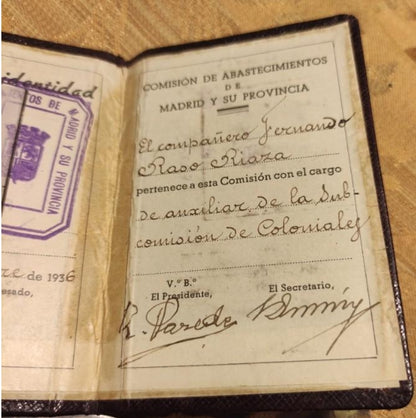 identidad
TOS DE MADRID Y SU PROVINCIA
re de 1936
esado,
COMISIÓN DE ABASTECIMIENTOS
DE
MADRID Y SU PROVINCIA
El compañero Fernando
Raso Riaza
pertenece a esta Comisión con el cargo
de auxiliar de la Sub-
comisión de Coloniales
V.º B.º
El Presidente,
El Secretario,
R. Paredes